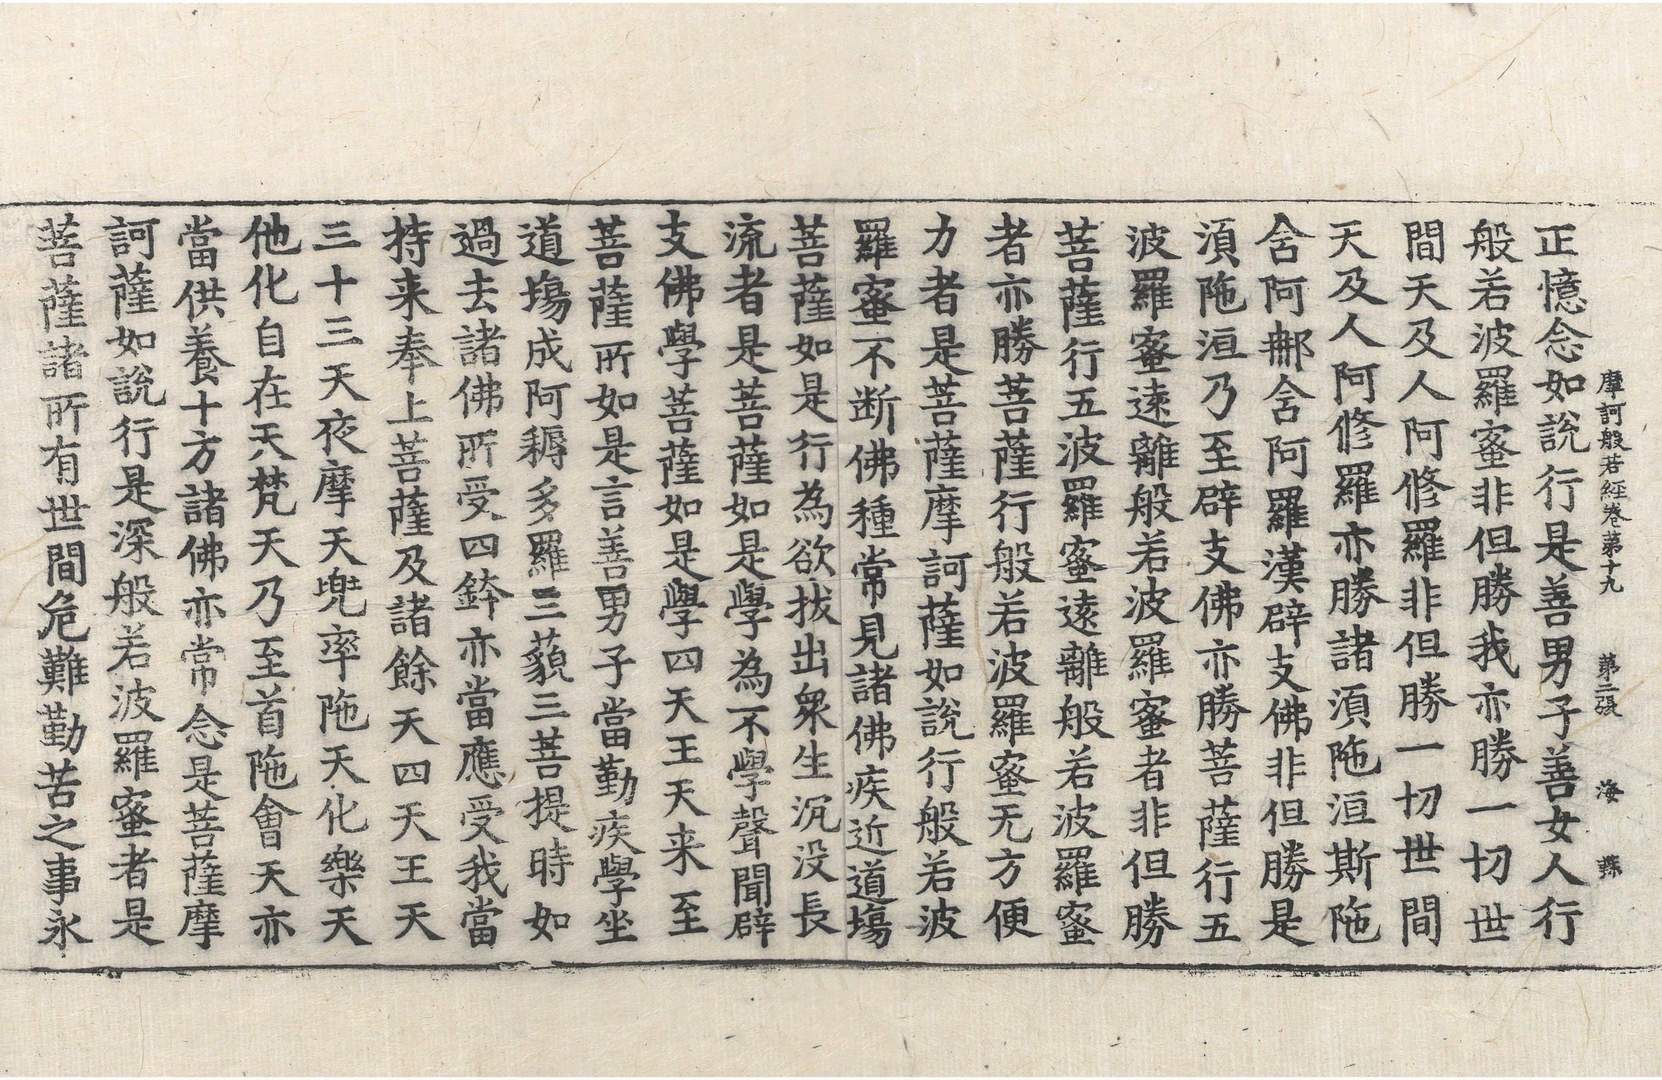 摩訶般若經卷第十九　第二張　海　蘇
正憶念如說行是善男子善女人行
般若波羅蜜非但勝我亦勝一切世
間天及人阿修羅非但勝一切世間
天及人阿修羅亦勝諸湏陁洹斯陁
含阿那含阿羅漢辟支佛非但勝是
湏陁洹乃至辟支佛亦勝菩薩行五
波羅蜜遠離般若波羅蜜者非但勝
菩薩行五波羅蜜遠離般若波羅蜜
者亦勝菩薩行般若波羅蜜无方便
力者是菩薩摩訶薩如說行般若波
羅蜜不斷佛種常見諸佛疾近道場
菩薩如是行為欲拔出衆生沉没長
流者是菩薩如是學為不學聲聞辟
支佛學菩薩如是學四天王天来至
菩薩所如是言善男子當勤疾學坐
道場成阿耨多羅三藐三菩提時如
過去諸佛所受四鉢亦當應受我當
持来奉上菩薩及諸餘天四天王天
三十三天夜摩天兜率陁天化樂天
他化自在天梵天乃至首陁會天亦
當供養十方諸佛亦常念是菩薩摩
訶薩如說行是深般若波羅蜜者是
菩薩諸所有世間危難勤苦之事永